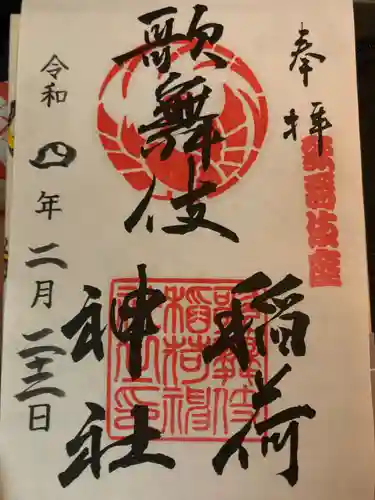 奉拝
歌舞伎座
歌舞伎
稲荷
神社
令和四年二月二十三日
歌舞伎稲荷神社印